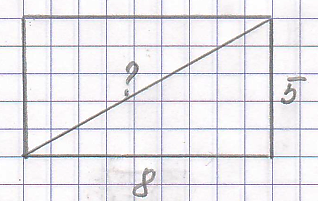 ?
5
8